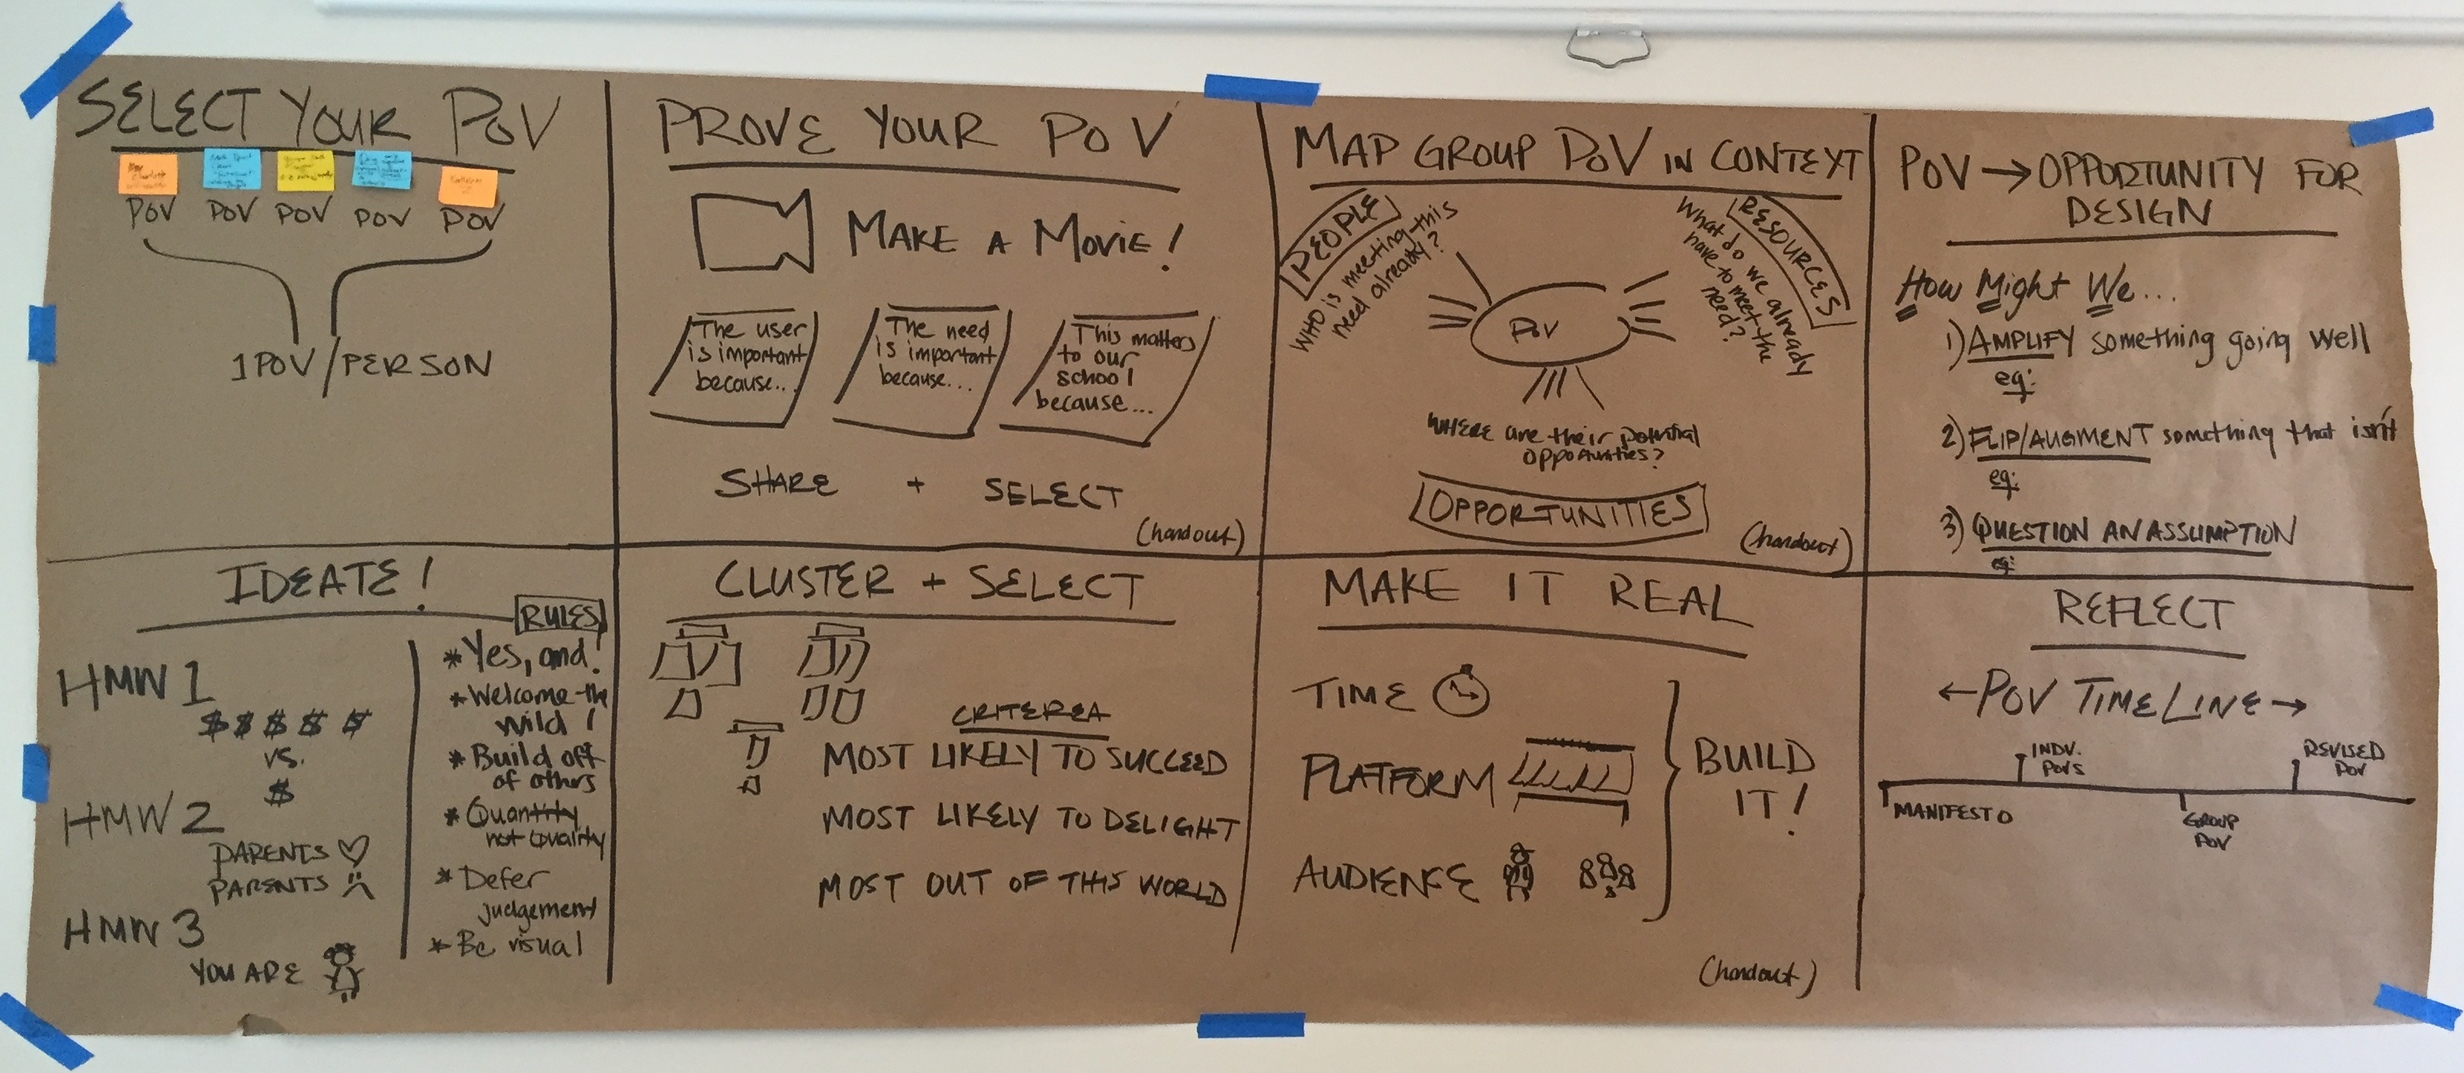 SELECT YOUR POV
POV POV POV POV POV
1 POV/PERSON
PROVE YOUR POV
MAKE A MOVIE!
The user
is important
because...
The need
is important
because...
This matters
to our
school
because...
SHARE + SELECT
(handout)
MAP GROUP POV IN CONTEXT
PEOPLE
WHO is meeting this
need already?
RESOURCES
What do we already
have to meet the
need?
POV
WHERE are their potential
opportunities?
OPPORTUNITIES
(handout)
POV → OPPORTUNITY FOR
DESIGN
How Might We...
1) AMPLIFY something going well
eg:
2) FLIP/AUGMENT something that isn't
eg:
3) QUESTION AN ASSUMPTION
eg:
IDEATE!
HMW 1
$ $ $ $ $
vs.
$
HMW 2
PARENTS ♡
PARENTS
HMW 3
YOU ARE
RULES
* Yes, and!
* Welcome the
wild!
* Build off
of others
* Quantity
not Quality
* Defer
judgement
* Be visual
CLUSTER + SELECT
CRITEREA
MOST LIKELY TO SUCCEED
MOST LIKELY TO DELIGHT
MOST OUT OF THIS WORLD
MAKE IT REAL
TIME
PLATFORM
AUDIENCE
BUILD
IT!
(handout)
REFLECT
← POV TIMELINE →
INDV.
POVS
REVISED
POV
MANIFESTO
GROUP
POV